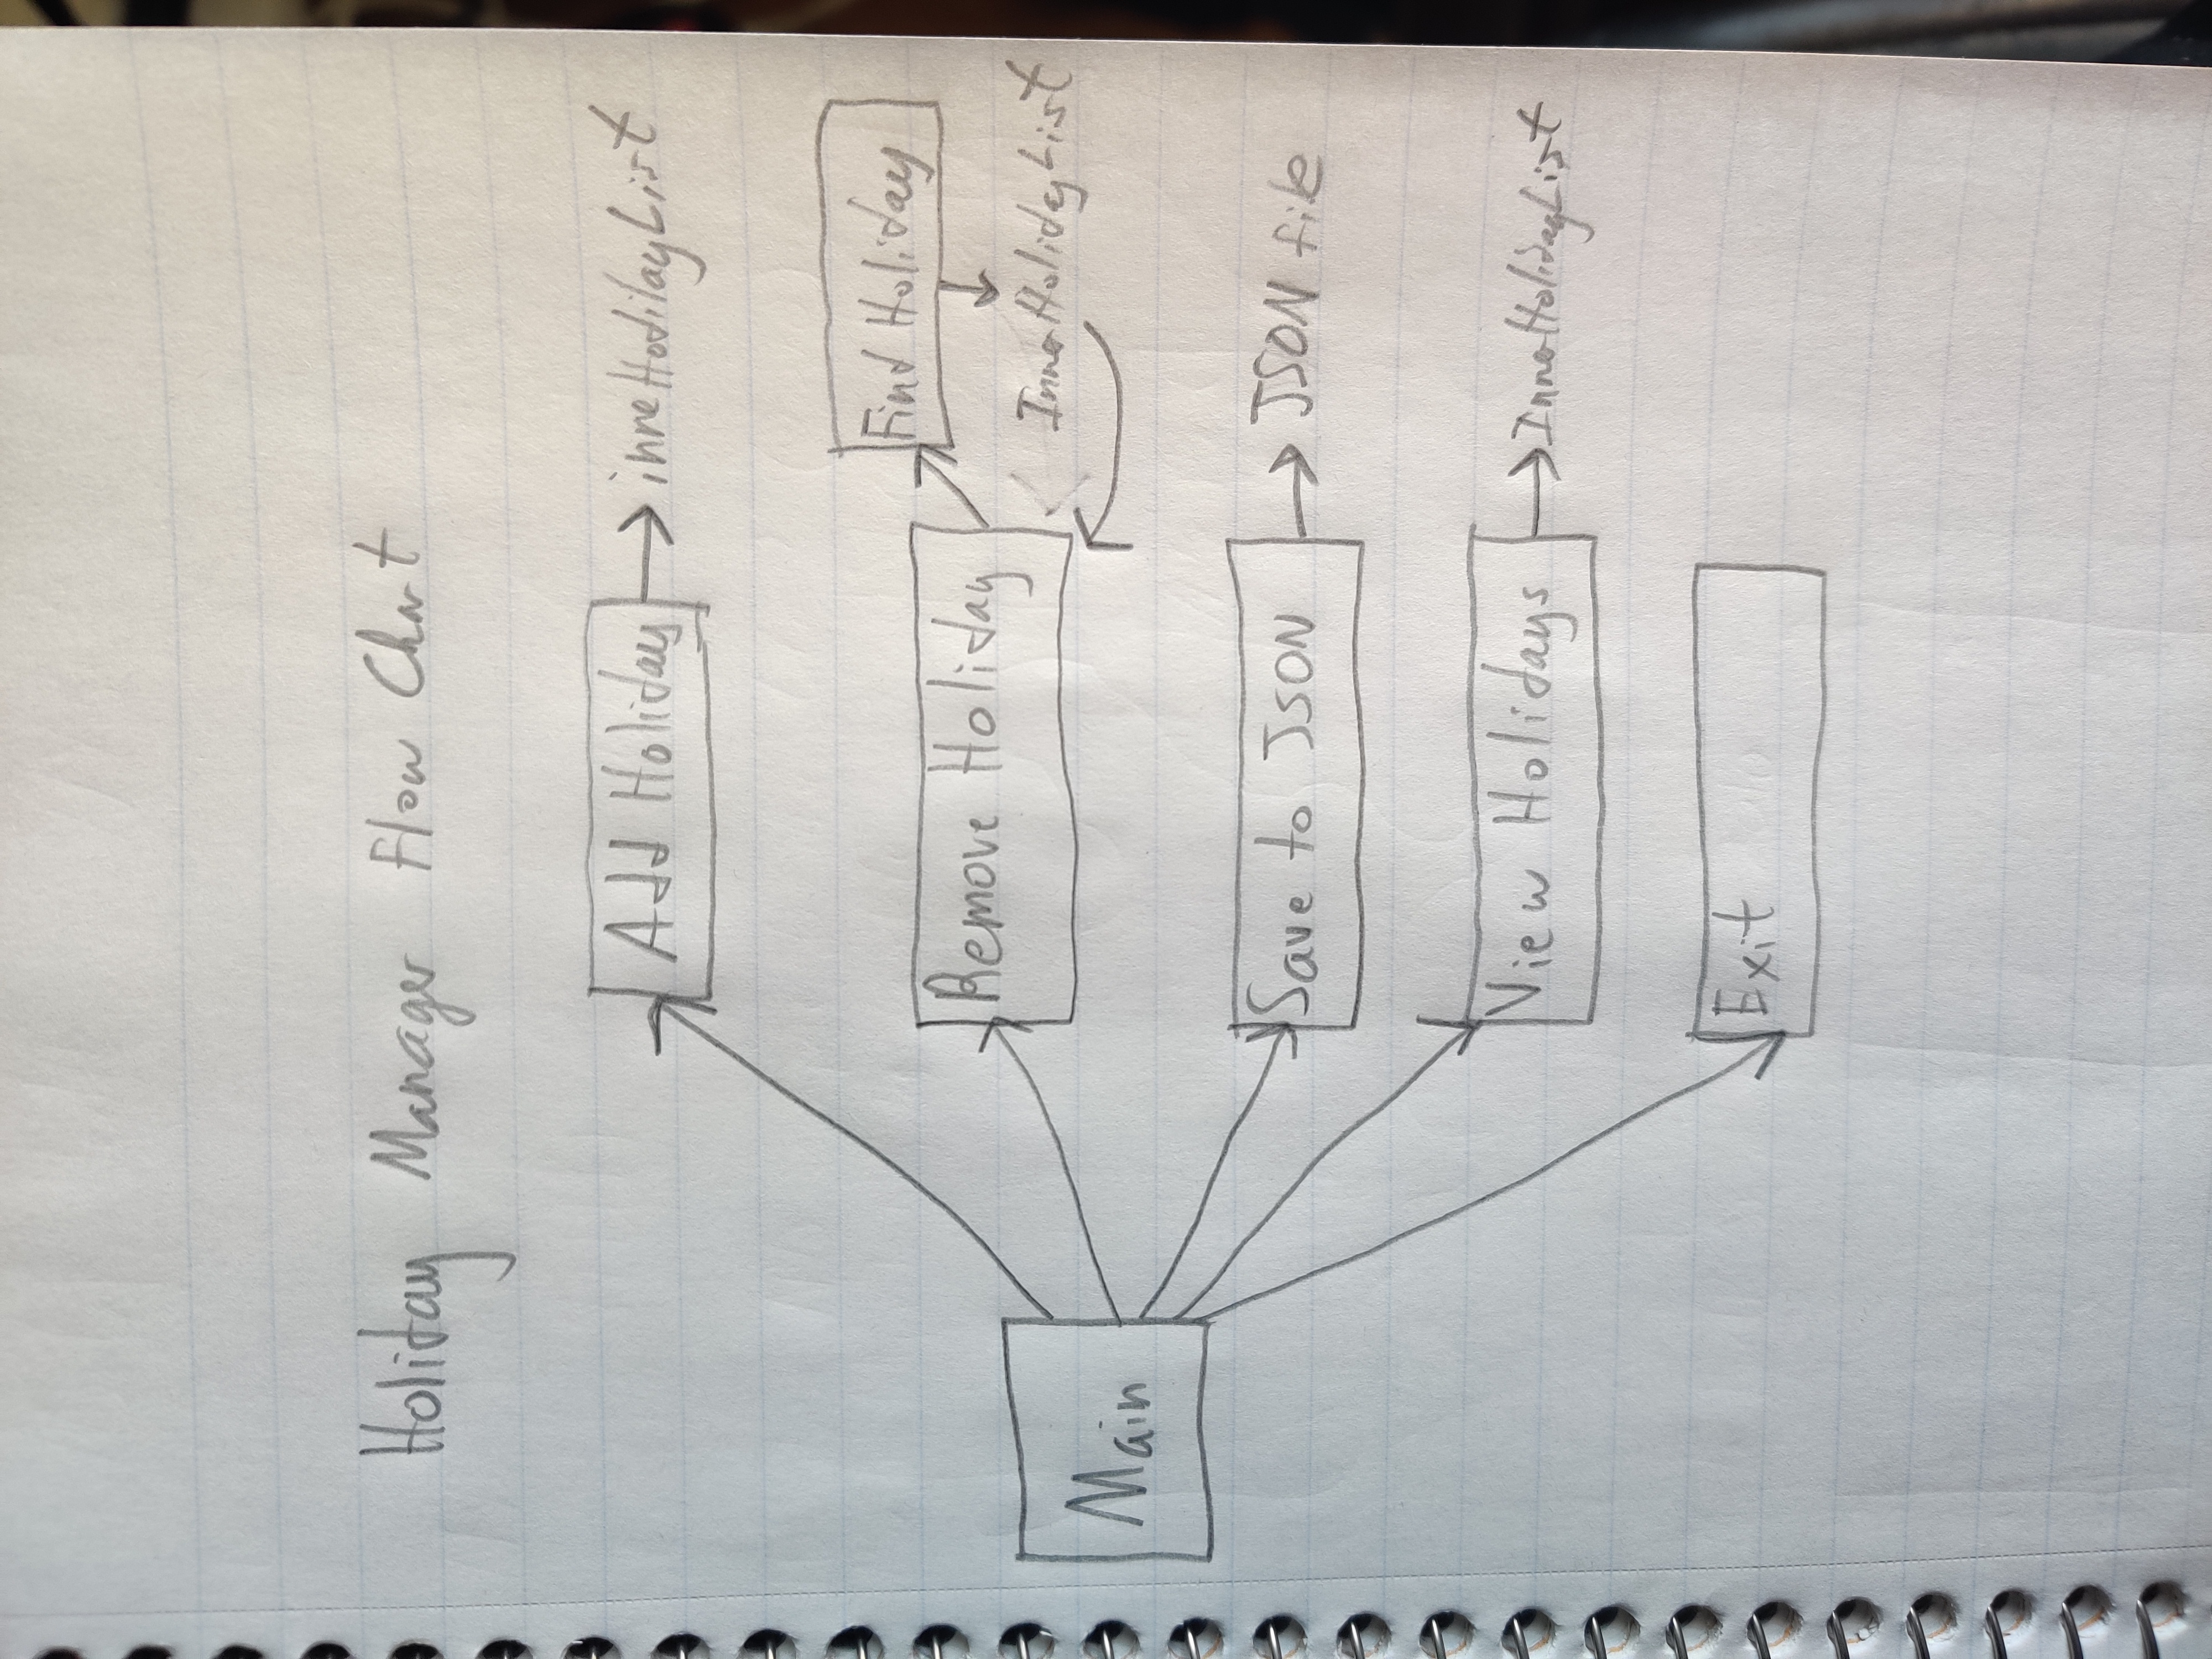 Holiday Manager Flow Chart
Add Holiday
inneHodilayList
Find Holiday
Remove Holiday
InnerHolidayList
Main
Save to JSON
JSON file
View Holidays
InnerHolidayList
Exit